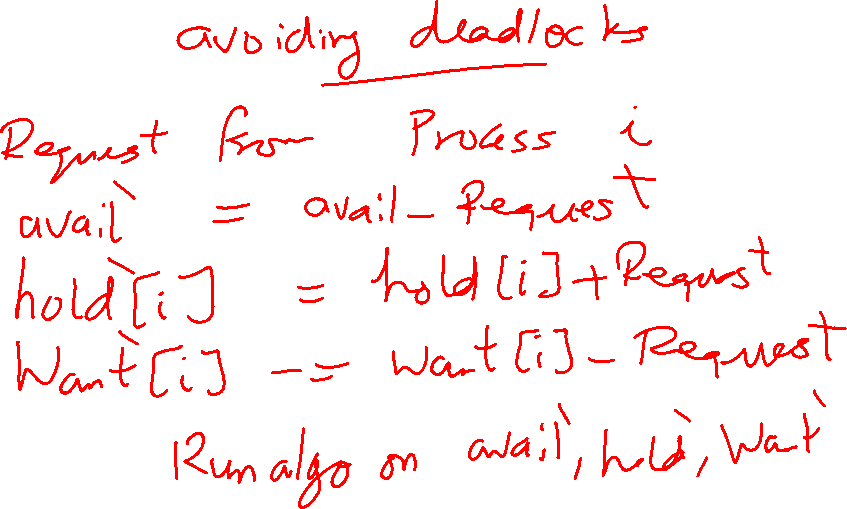 avoiding deadlocks
Request from Process i
avail' = avail - Request
hold'[i] = hold[i] + Request
Want'[i] -= Want[i] - Request
Run algo on avail', hold', Want'